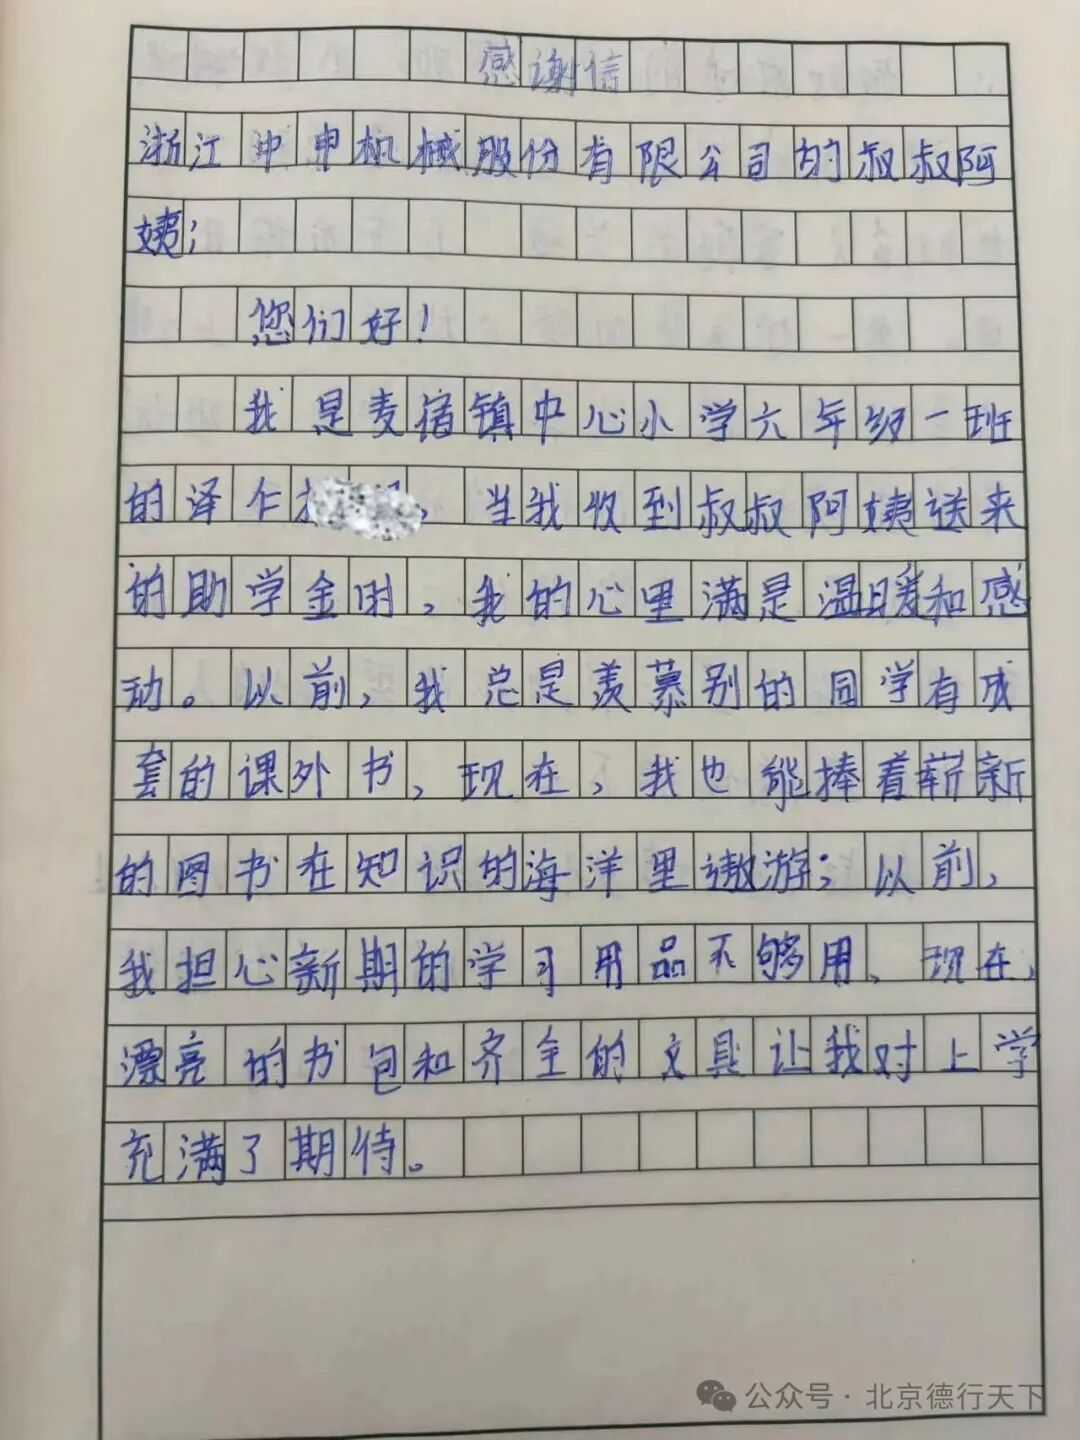 感谢信
浙江中申机械股份有限公司的叔叔阿
姨:
您们好!
我是麦宿镇中心小学六年级一班
的泽乍，当我收到叔叔阿姨送来
的助学金时，我的心里满是温暖和感
动。以前，我总是羡慕别的同学有成
套的课外书，现在，我也能捧着崭新
的图书在知识的海洋里遨游；以前，
我担心新期的学习用品不够用、现在，
漂亮的书包和齐全的文具让我对上学
充满了期待。
公众号·北京德行天下